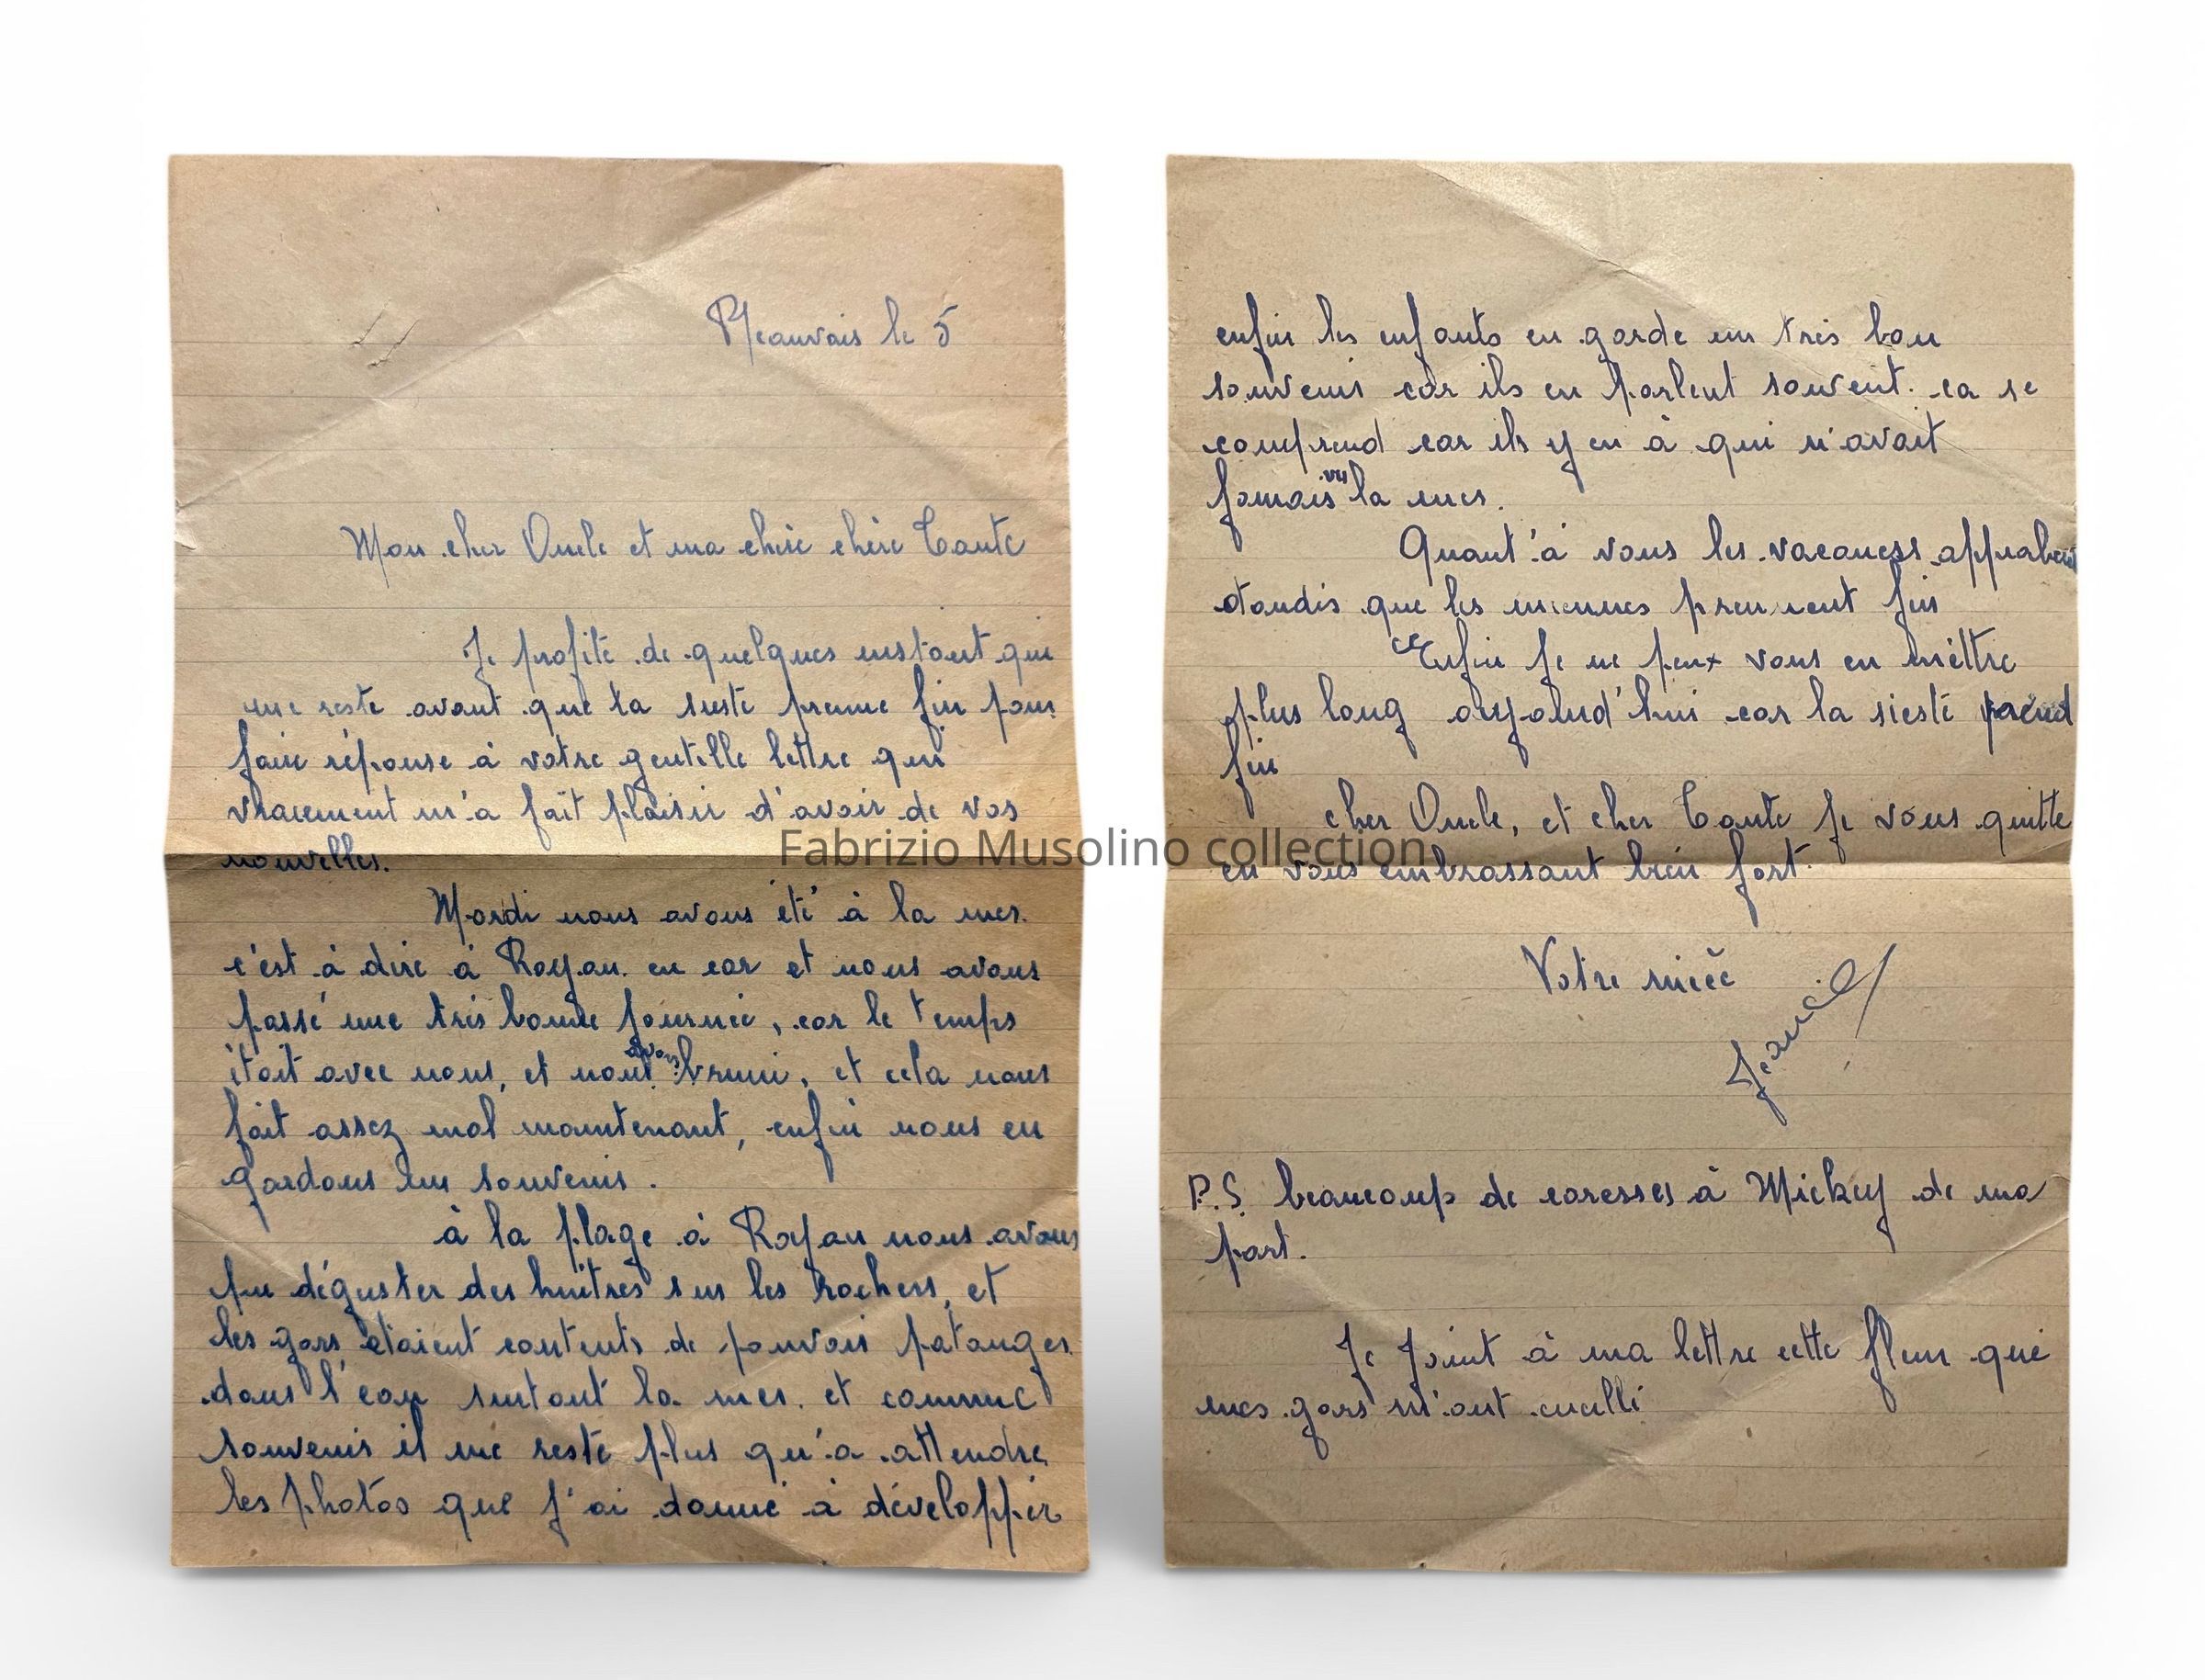 le 5
Mon cher Oncle et ma chère chère Tante
Je profite de quelques instant qui
me reste avant que la sieste prenne fin pour
faire réponse à votre gentille lettre qui
vraiement m'a fait plaisir d'avoir de vos
nouvelles.
Mardi nous avons été à la mer.
c'est à dire à Royan. en car et nous avons
passé une très bonne journée, car le temps
était avec nous, et nous avons bruni, et cela nous
fait assez mal maintenant, enfin nous en
gardons un souvenir.
à la plage à Royan nous avons
pu déguster des huîtres sur les rochers, et
les gars étaient contents de pouvoir patauger
dans l'eau surtout la mer. et comme
souvenir il me reste plus qu'a attendre
les photos que j'ai donné à développer
enfin les enfants en garde un très bon
souvenir car ils en parlent souvent. ca se
comprend car ils y en à qui n'avait
jamais vu la mer.
Quant'à vous les vacances
tandis que les miennes prennent fin
Enfin je ne peux vous en mèttre
plus long car la sieste prend
fin
cher Oncle, et cher Tante je vous quitte
en vous embrassant bien fort.
Votre nièce
P.S. beaucoup de caresses à Mickey de ma
part.
Je joint à ma lettre cette fleur que
mes gars m'ont cueilli
Fabrizio Musolino collection